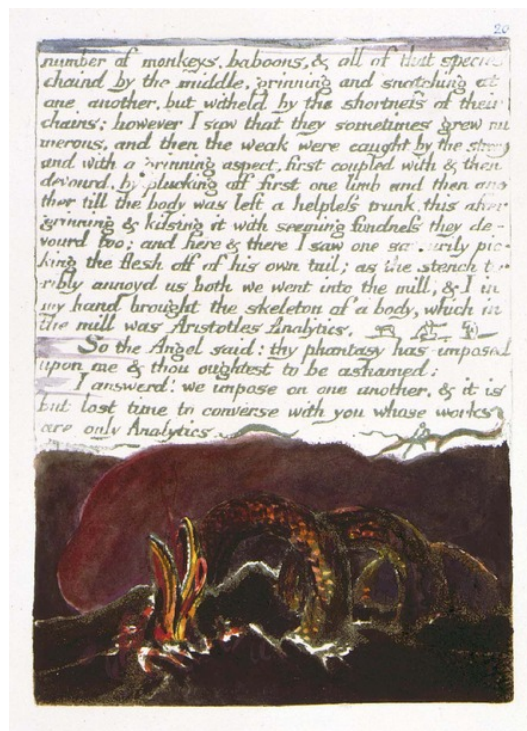 20
number of monkeys, baboons, & all of that species
chaind by the middle, grinning and snatching at
one another, but witheld by the shortness of their
chains: however I saw that they sometimes grew nu
merous, and then the weak were caught by the strong
and with a grinning aspect, first coupled with & then
devourd, by plucking off first one limb and then ano
ther till the body was left a helpless trunk, this after
grinning & kissing it with seeming fondness they de-
vourd too; and here & there I saw one savourily pic-
king the flesh off of his own tail; as the stench ter
ribly annoyd us both we went into the mill, & I in
my hand brought the skeleton of a body, which in
the mill was Aristotles Analytics.
So the Angel said: thy phantasy has imposed
upon me & thou oughtest to be ashamed:
I answerd: we impose on one another, & it is
but lost time to converse with you whose works
are only Analytics